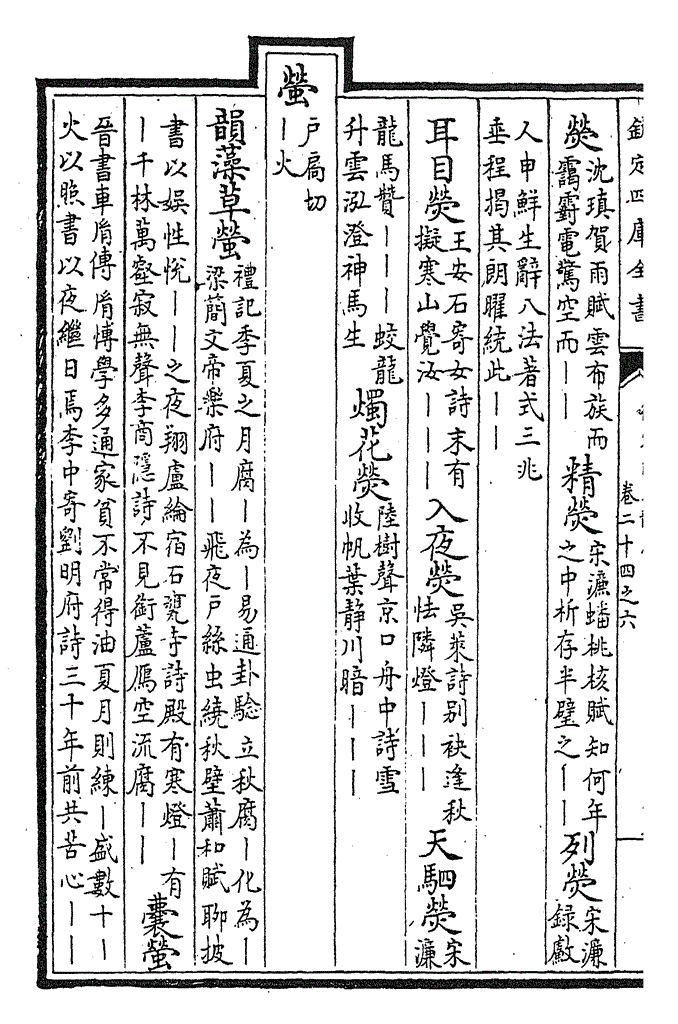 欽定四庫全書
卷二十四之六
熒
沈瑱賀雨賦雲布族而
靄霨電驚空而丨丨
精熒
宋濂蟠桃核賦知何年
之中析存半璧之丨丨
列熒
宋濂
録厰
人申鮮生辭八法著式三兆
垂程揭其朗曜統此丨丨
耳目熒
王安石寄女詩末有
擬寒山覺汝丨丨丨
入夜熒
吳萊詩别袂逢秋
怯隣燈丨丨丨
天駟熒
宋
濂
龍馬贊丨丨丨蛟龍
升雲泓澄神馬生
燭花熒
陸樹聲京口舟中詩雪
收帆葉静川暗丨丨丨
螢
户扃切
丨火
韻藻草螢
禮記季夏之月腐丨為丨易通卦驗立秋腐丨化為丨
梁簡文帝樂府丨丨飛夜户絲虫繞秋壁蕭和賦聊披
書以娛性悅丨丨之夜翔盧綸宿石甕寺詩殿有寒燈丨有
丨千林萬壑寂無聲李商隱詩不見銜蘆鴈空流腐丨丨
囊螢
晉書車胤傳胤博學多通家貧不常得油夏月則練丨盛數十丨
火以照書以夜繼日焉李中寄劉明府詩三十年前共苦心丨丨